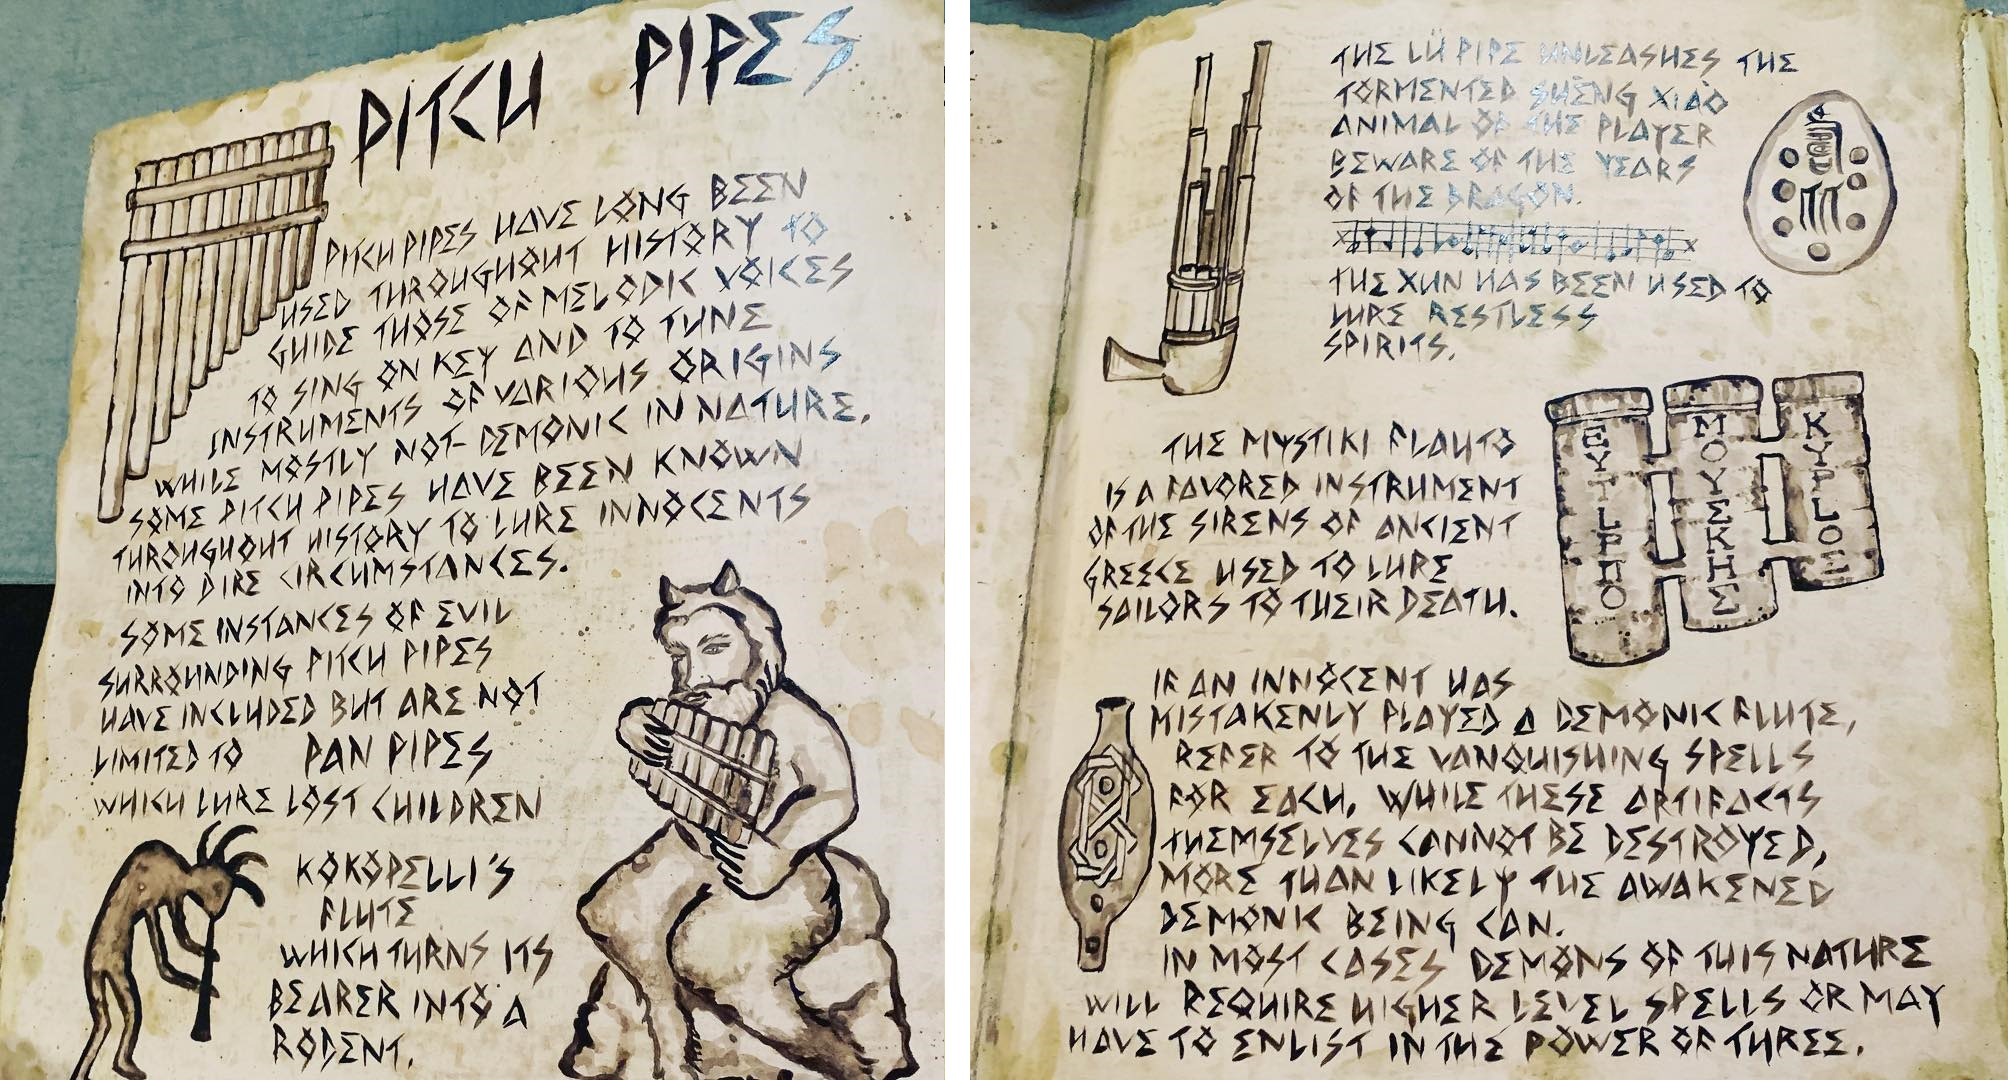 PITCH PIPES
PITCH PIPES HAVE LONG BEEN
USED THROUGHOUT HISTORY TO
GUIDE THOSE OF MELODIC VOICES
TO SING ON KEY AND TO TUNE
INSTRUMENTS OF VARIOUS ORIGINS
WHILE MOSTLY NOT DEMONIC IN NATURE,
SOME PITCH PIPES HAVE BEEN KNOWN
THROUGHOUT HISTORY TO LURE INNOCENTS
INTO DIRE CIRCUMSTANCES.
SOME INSTANCES OF EVIL
SURROUNDING PITCH PIPES
HAVE INCLUDED BUT ARE NOT
LIMITED TO PAN PIPES
WHICH LURE LOST CHILDREN
KOKOPELLI'S
FLUTE
WHICH TURNS ITS
BEARER INTO A
RODENT.
THE LÜ PIPE UNLEASHES THE
TORMENTED SHĒNG XIÀO
ANIMAL OF THE PLAYER
BEWARE OF THE YEARS
OF THE DRAGON.
THE XUN HAS BEEN USED TO
LURE RESTLESS
SPIRITS.
THE MYSTIKI FLAUTO
IS A FAVORED INSTRUMENT
OF THE SIRENS OF ANCIENT
GREECE USED TO LURE
SAILORS TO THEIR DEATH.
ΕΥΤLΡΗΟ
ΜΟΥΕRΗΕ
ΚΥΡLΟΕ
IF AN INNOCENT HAS
MISTAKENLY PLAYED A DEMONIC FLUTE,
REFER TO THE VANQUISHING SPELLS
FOR EACH, WHILE THESE ARTIFACTS
THEMSELVES CANNOT BE DESTROYED,
MORE THAN LIKELY THE AWAKENED
DEMONIC BEING CAN.
IN MOST CASES DEMONS OF THIS NATURE
WILL REQUIRE HIGHER LEVEL SPELLS OR MAY
HAVE TO ENLIST IN THE POWER OF THREE.